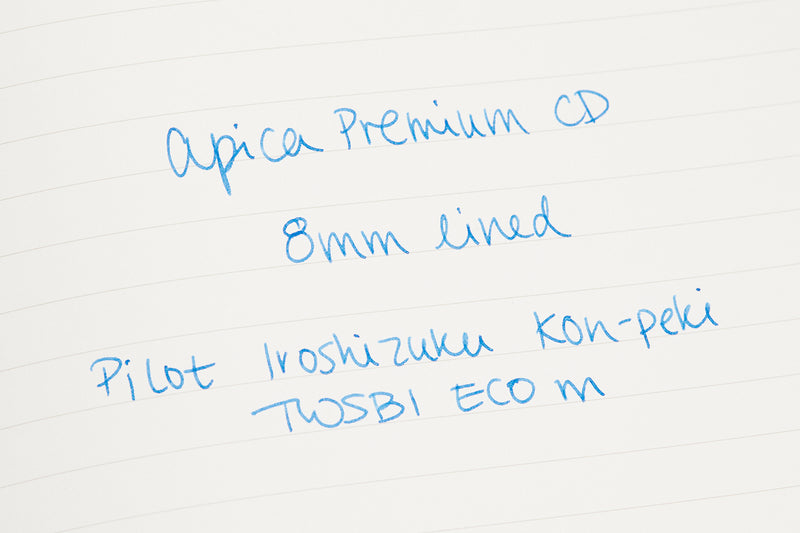 apica Premium CD
8mm lined
Pilot Iroshizuku Kon-peki
TWSBI ECO M